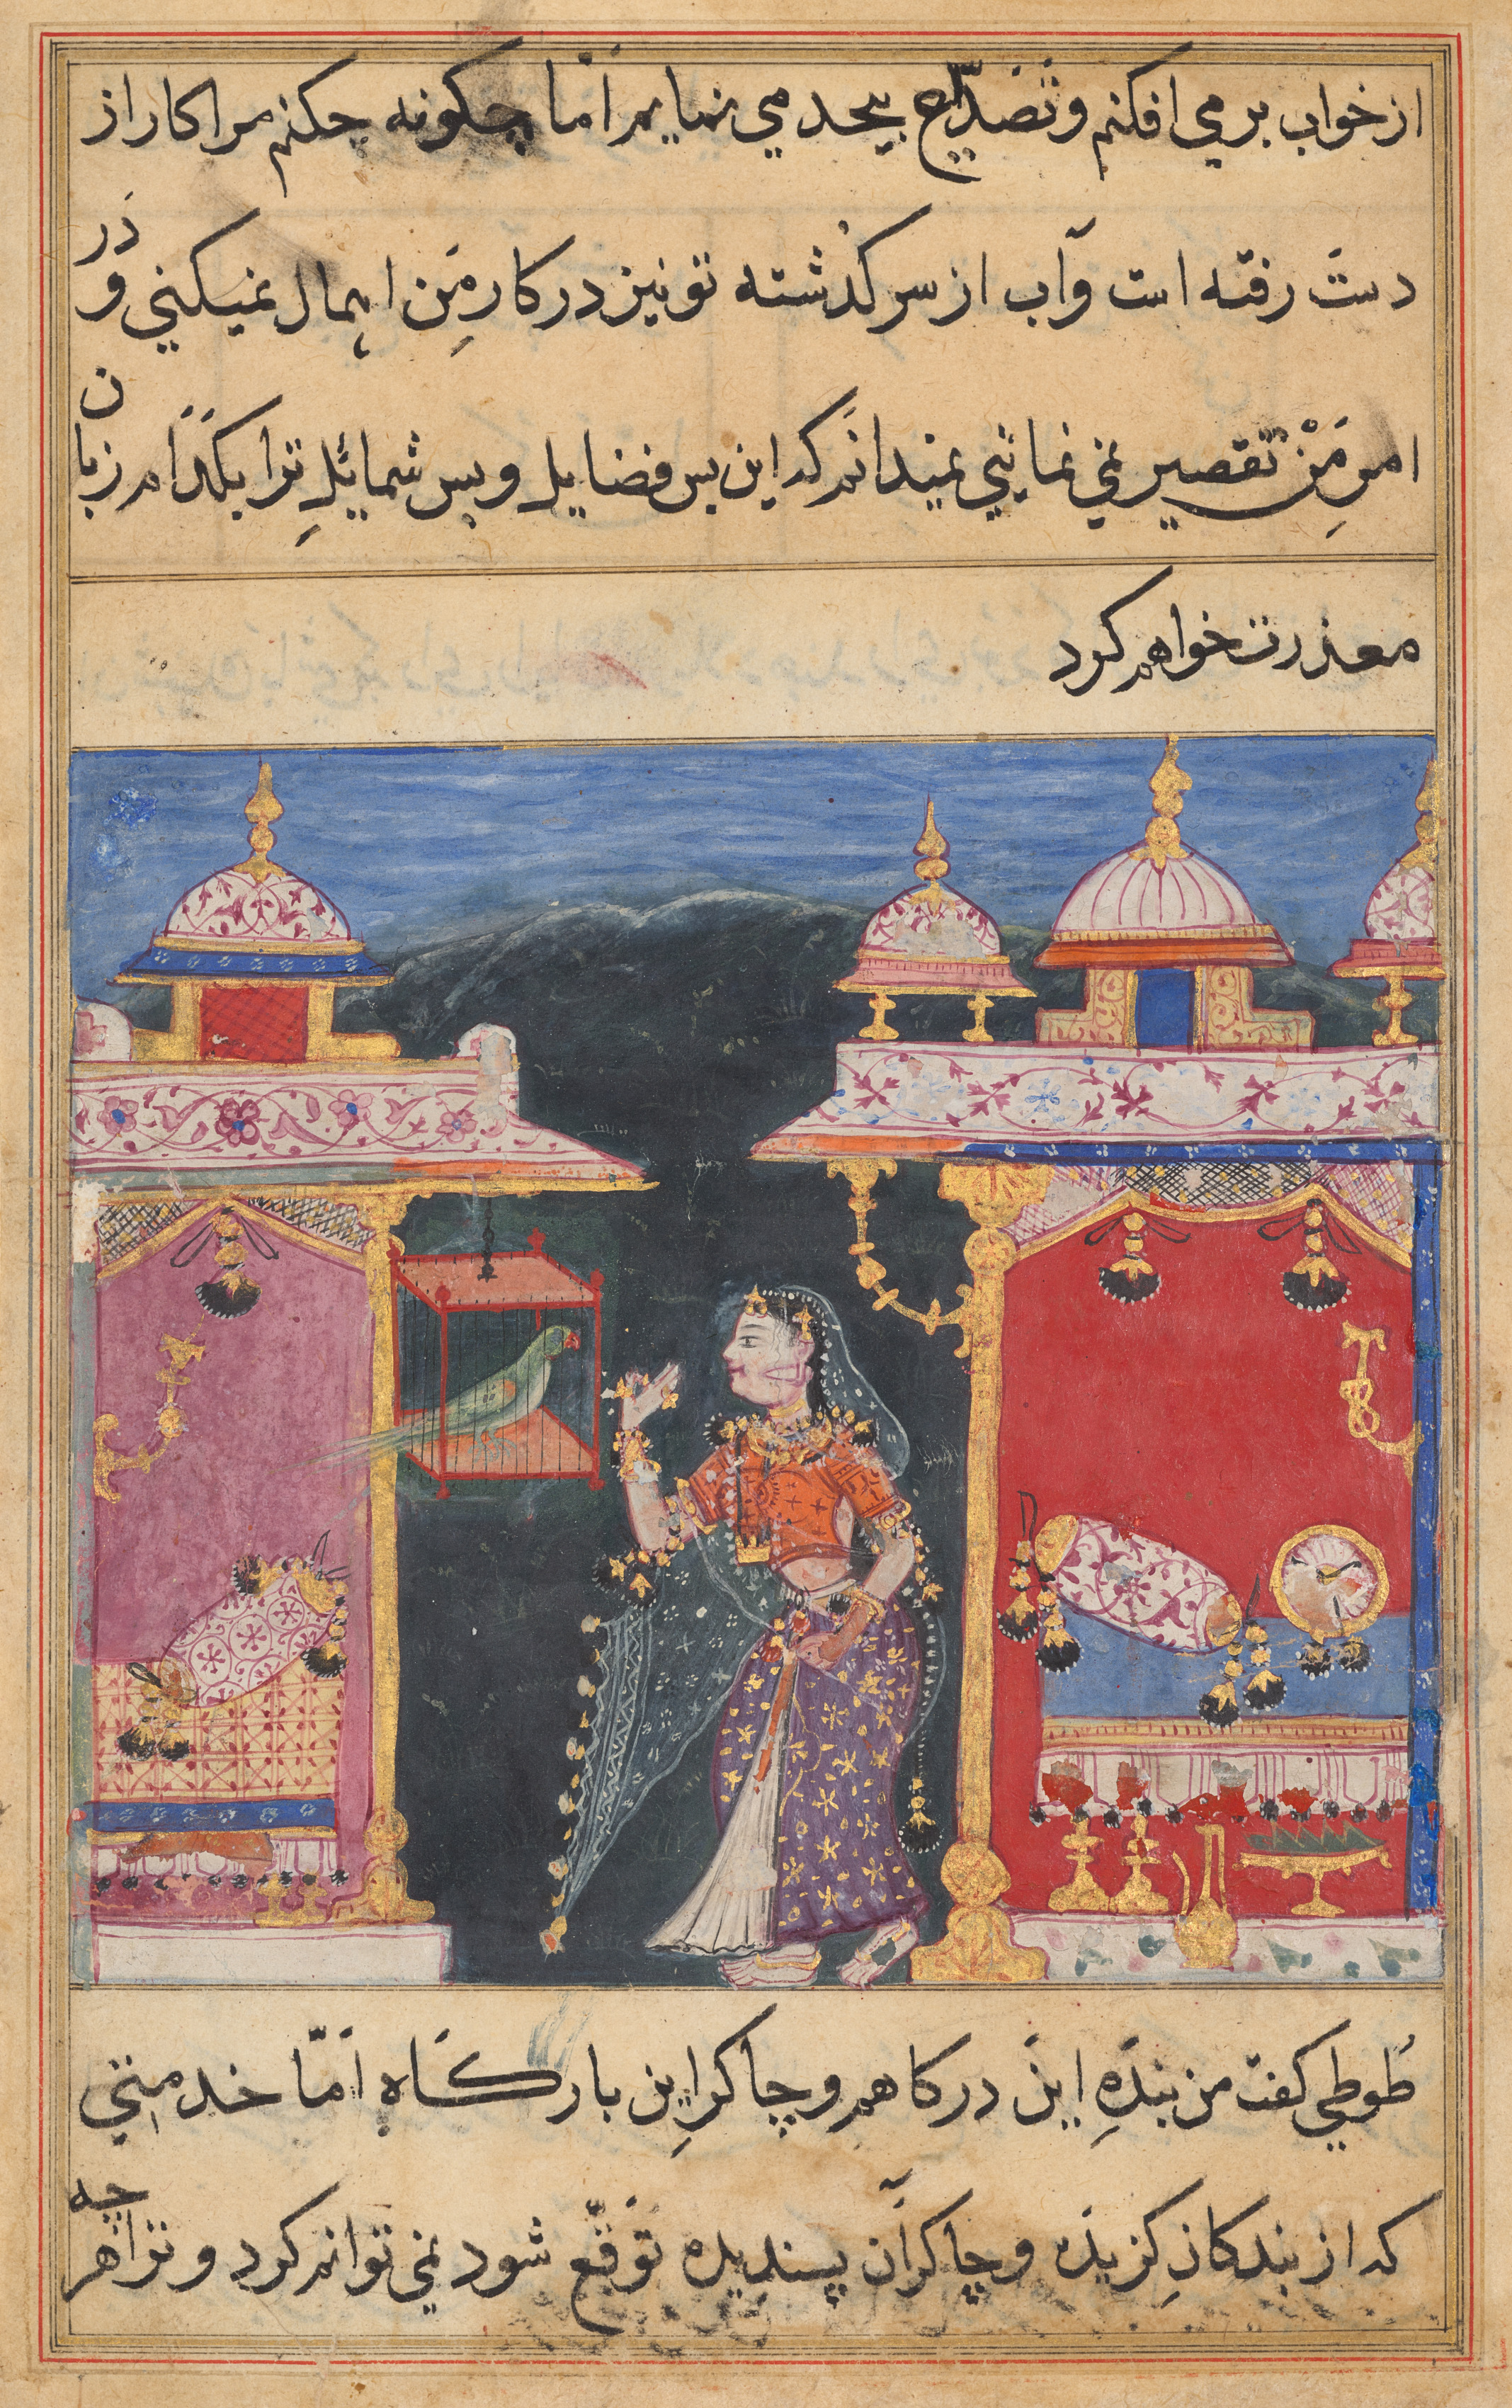 از خواب بر مي افكنم و تصدّاع بيحد مي نمايم امّا چكونه جكنم مرا كار از
دست رفته است و آب از سر كذشته تو نيز در كار من اهمال نميكني و در
امر من تقصير نمي نمائي نميدانم كه اين بس فضايل و بس شمائلِ ترا بكدام زبان
معذرت خواهم كرد
طوطي كفت من بندهِ اين دركاهم و چاكرِ اين باركاه امّا خدمتي
كه از بندكانِ كزيده و چاكران پسنديده توقّع شود نمي توانم كرد و ترا هر چه